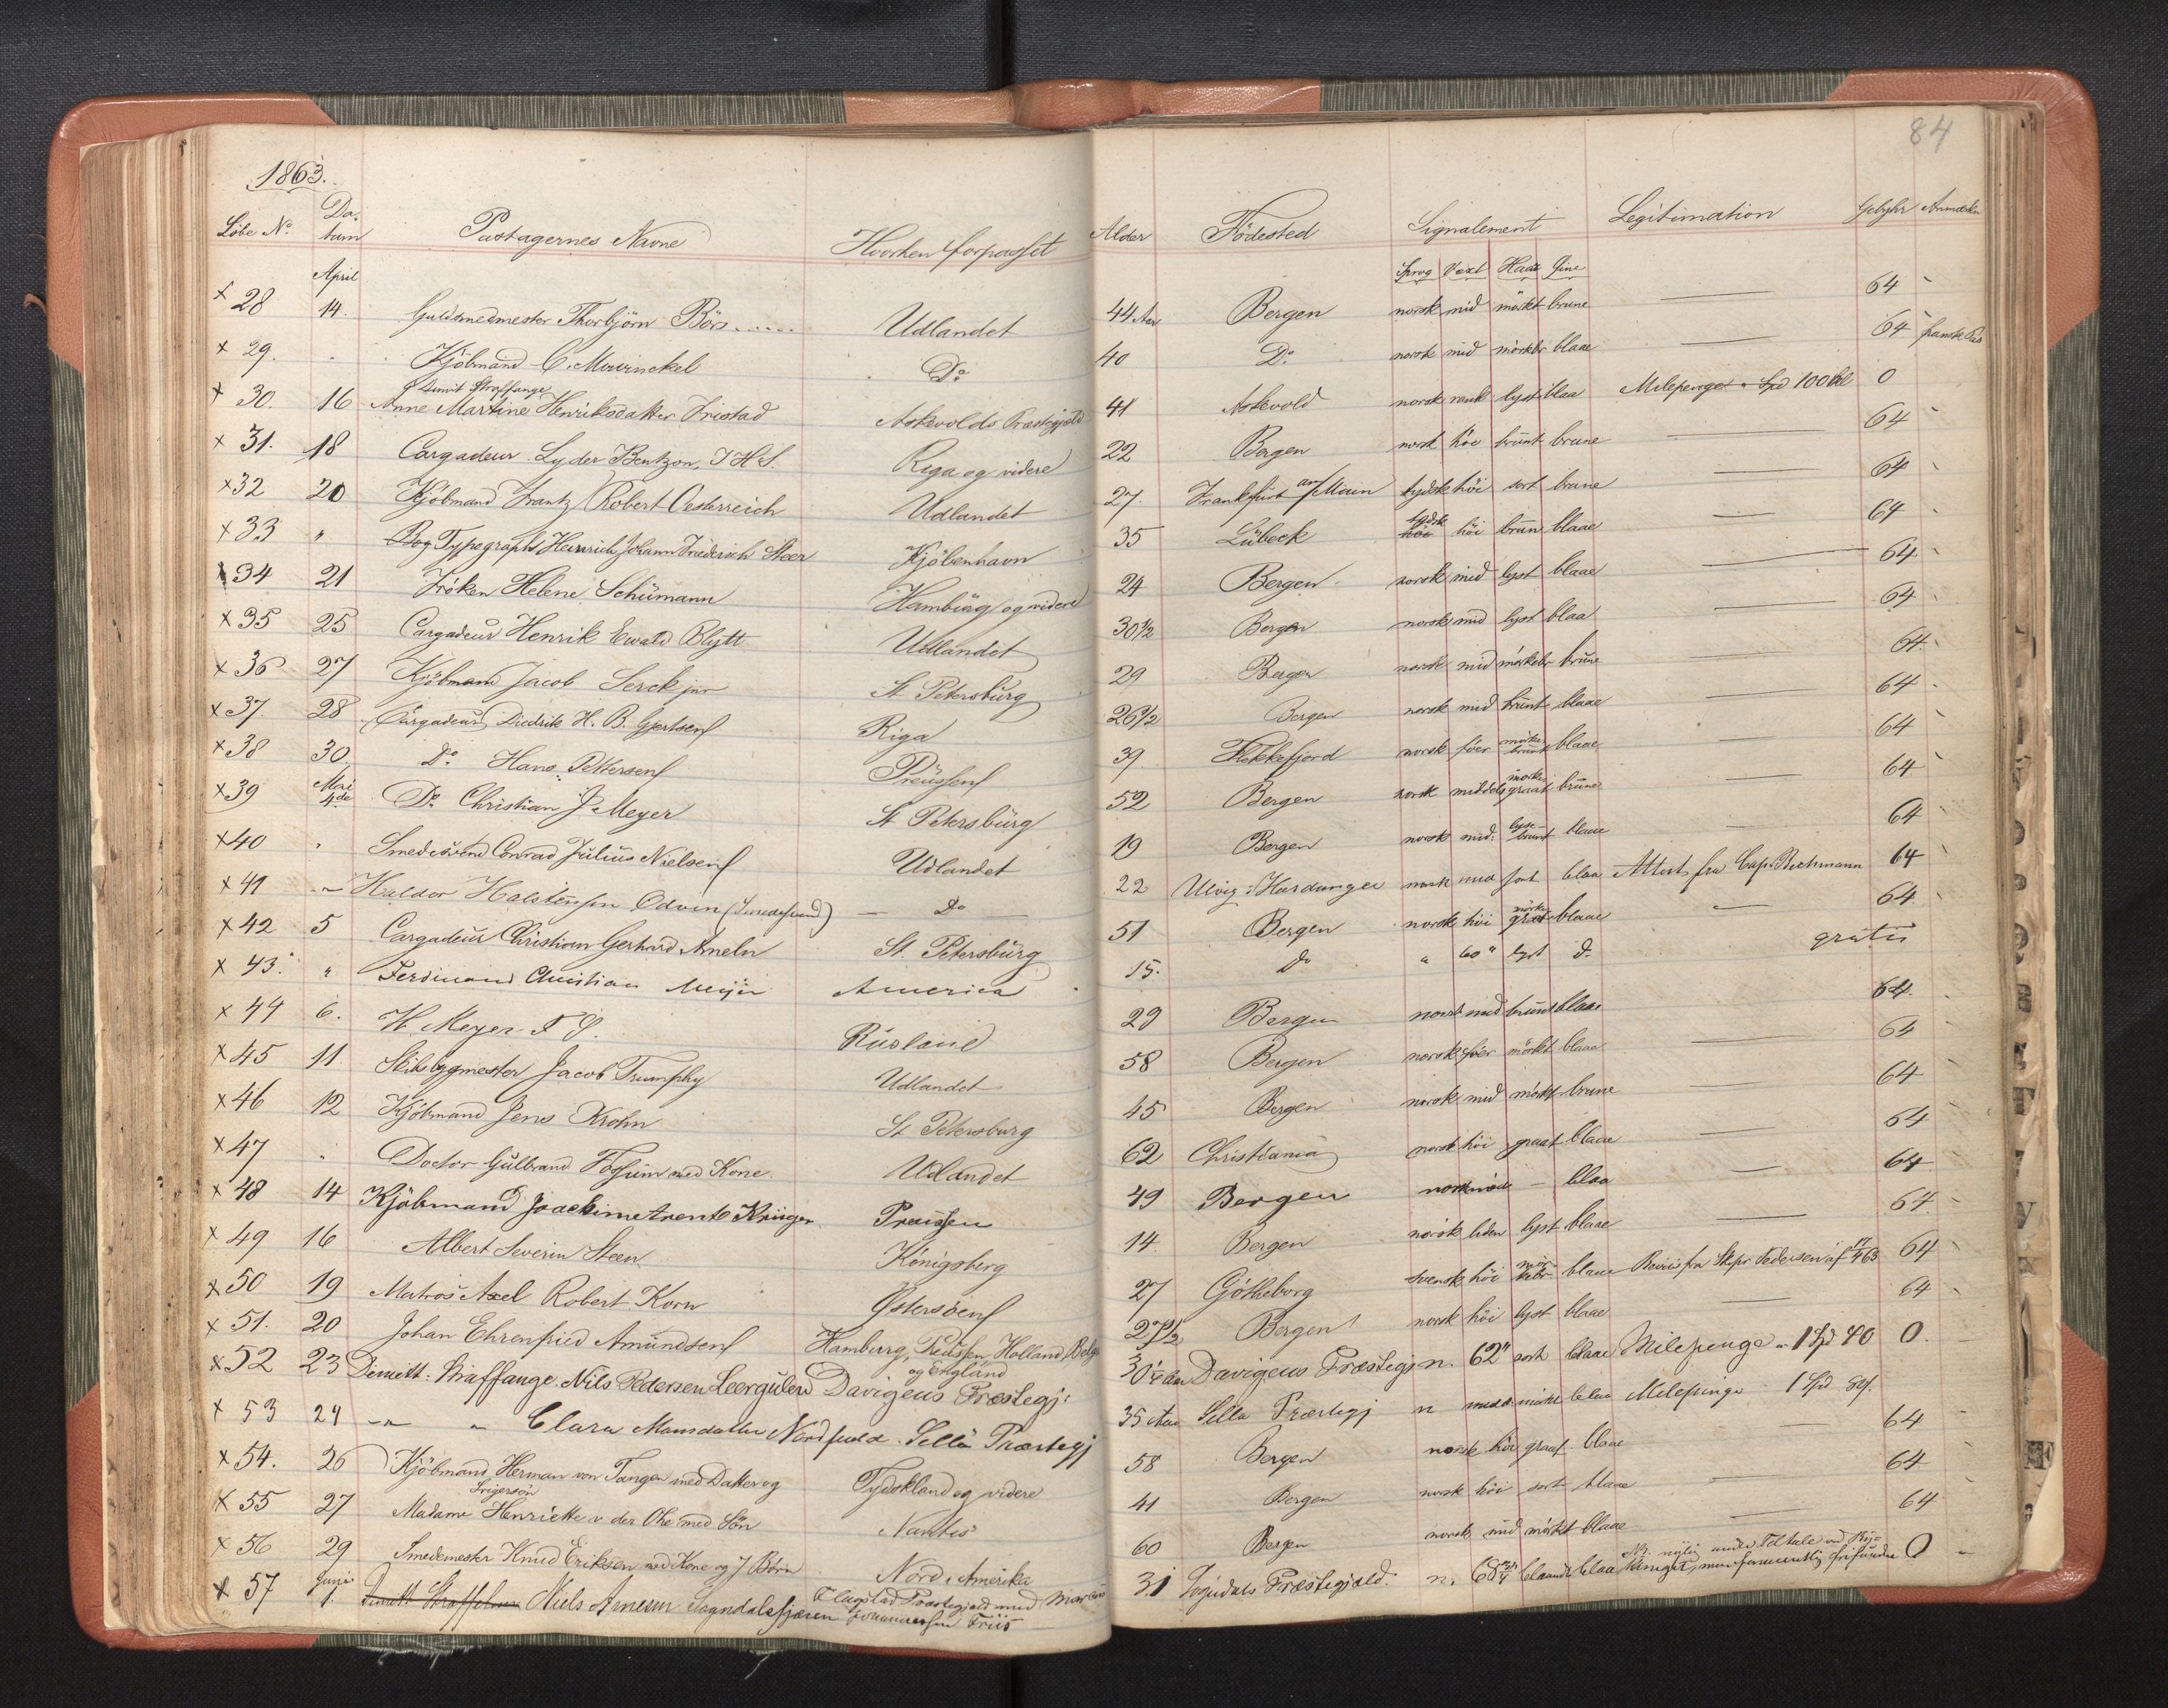 84
1863.
Löbe No. Datum Pastagernes Navne Hvorhen forpasset Alder Födested Signalement Legitimation Gebyhr Anmærkn
Sprog Vext Haar Öine
April
x 28 14. Guldsmedmester Thorbjörn Börs Udlandet 44 Aar Bergen norsk mid mörkt brune — 64
x 29. Kjöbmand C. Mowinckel Do 40 Do norsk mid mörkbr blaae — 64 fransk Pas
dimit Straffange
x 30. 16 Anne Martine Henriksdatter Tristad Askevolds Præstegjeld 41 Askevold norsk rank lyst blaa Milepenge 100 0
x 31. 18 Cargadeur Lyder Bentzon, J H S. Riga og videre 22 Bergen norsk höi brunt brune — 64
x 32 20 Kjöbmand Frantz Robert Oesterreich Udlandet 27. Frankfurt am Main tydsk höi sort brune — 64
x 33 " Bog Typograph Heinrich Johann Friederich Steer Kjöbenhavn 35 Lübeck tydsk höi brun blaae — 64
x 34 21 Fröken Helene Schümann Hamburg og videre 24 Bergen norsk mid lyst blaae — 64
x 35 25 Cargadeur Henrik Ewald Blytt Udlandet 30 1/2 Bergen norsk mid lyst blaa — 64
x 36 27 Kjöbmand Jacob Serck jnr St Petersburg 29 Bergen norsk mid mörkebr brune — 64
x 37. 28 Cargadeur Diedrik H. B. Gjertsen Riga 26 1/2 Bergen norsk mid brunt blaae — 64
x 38 30 Do Hans Pettersen Preussen 39 Flekkefjord norsk föer mörkebrunt blaae — 64
x 39 Mai 4de Do Christian J Meyer St Petersburg 52 Bergen norsk middels mörkegraat brune — 64
x 40 " Smedesvend Conrad Julius Nielsen Udlandet 19 Bergen norsk mid. lysebrunt blaae — 64
x 41 " Haldor Halstensen Odven (Smedesvend) — Do — 22 Ulvig i Hardanger norsk mid sort blaa Attest fra Cap. Bechmann 64
x 42 5 Cargadeur Christian Gerhard Ameln St. Petersburg 51 Bergen norsk höi mörkegrat blaae — 64
x 43. " Ferdinand Christian Meyer America 15. Do " 60" lyst Do gratis
x 44 6. H Meyer Rusland 29 Bergen norsk mid brunt blaae 64
x 45 11 Skibsbygmester Jacob Trumphy Udlandet 58 Bergen norsk föer mörkt blaae — 64
x 46 12 Kjöbmand Jens Krohn St Petersburg 45 Bergen norsk mid mörkt brune — 64
x 47 " Doctor Gulbrand Fossum med Kone Udlandet 62 Christiania norsk höi graat blaae — 64
x 48 14 Kjöbmand Joachim Arents Krüger Preussen 49 Bergen norsk — blaa — 64
x 49 16 Albert Severin Steen Königsberg 14. Bergen norsk liden lyst blaae — 64
x 50 19 Matros Axel Robert Korn Östersöen 27 Götheborg svensk höi mörkebr blaae Beviis fra Skpr Pedersen af 17/4 63 64
x 51. 20 Johan Ehrenfried Amundsen Hamburg, Preussen, Holland, Belg og England 27 1/2 Bergen norsk höi lyst blaae — 64
x 52 23 Dimitt: Straffange Nils Pedersen Leergulen Davigens Præstegj: 30 1/4 Aar Davigens Præstegj n. 62" sort blaae Milepenge 1 Spd 40 0.
x 53 24 — " Clara Monsdatter Nordfuld Sellö Præstegj 35 Aar Sellö Præstegj n mid mörkt blaa Milepenge 1 Spd
x 54. 26 Kjöbmand Herman von Tangen med Datter og Svigersön Tydskland og videre 58 Bergen norsk höi graat blaae — 64
x 55 27 Madame Henriette v der Ohe med Sön Nantes 41 Bergen norsk höi sort blaae — 64
x 56 29 Smedemester Knud Eriksen med Kone og 7 Börn Nord Amerika 60 Bergen norsk mid mörkt blaae — 64
x 57 Juni 1. Dimitt Straffslave Niels Arnesen Sogndalsfjæren Præstegjæld med Johannessen Friis 31 Sogndals Præstegjæld. n. blaa 0